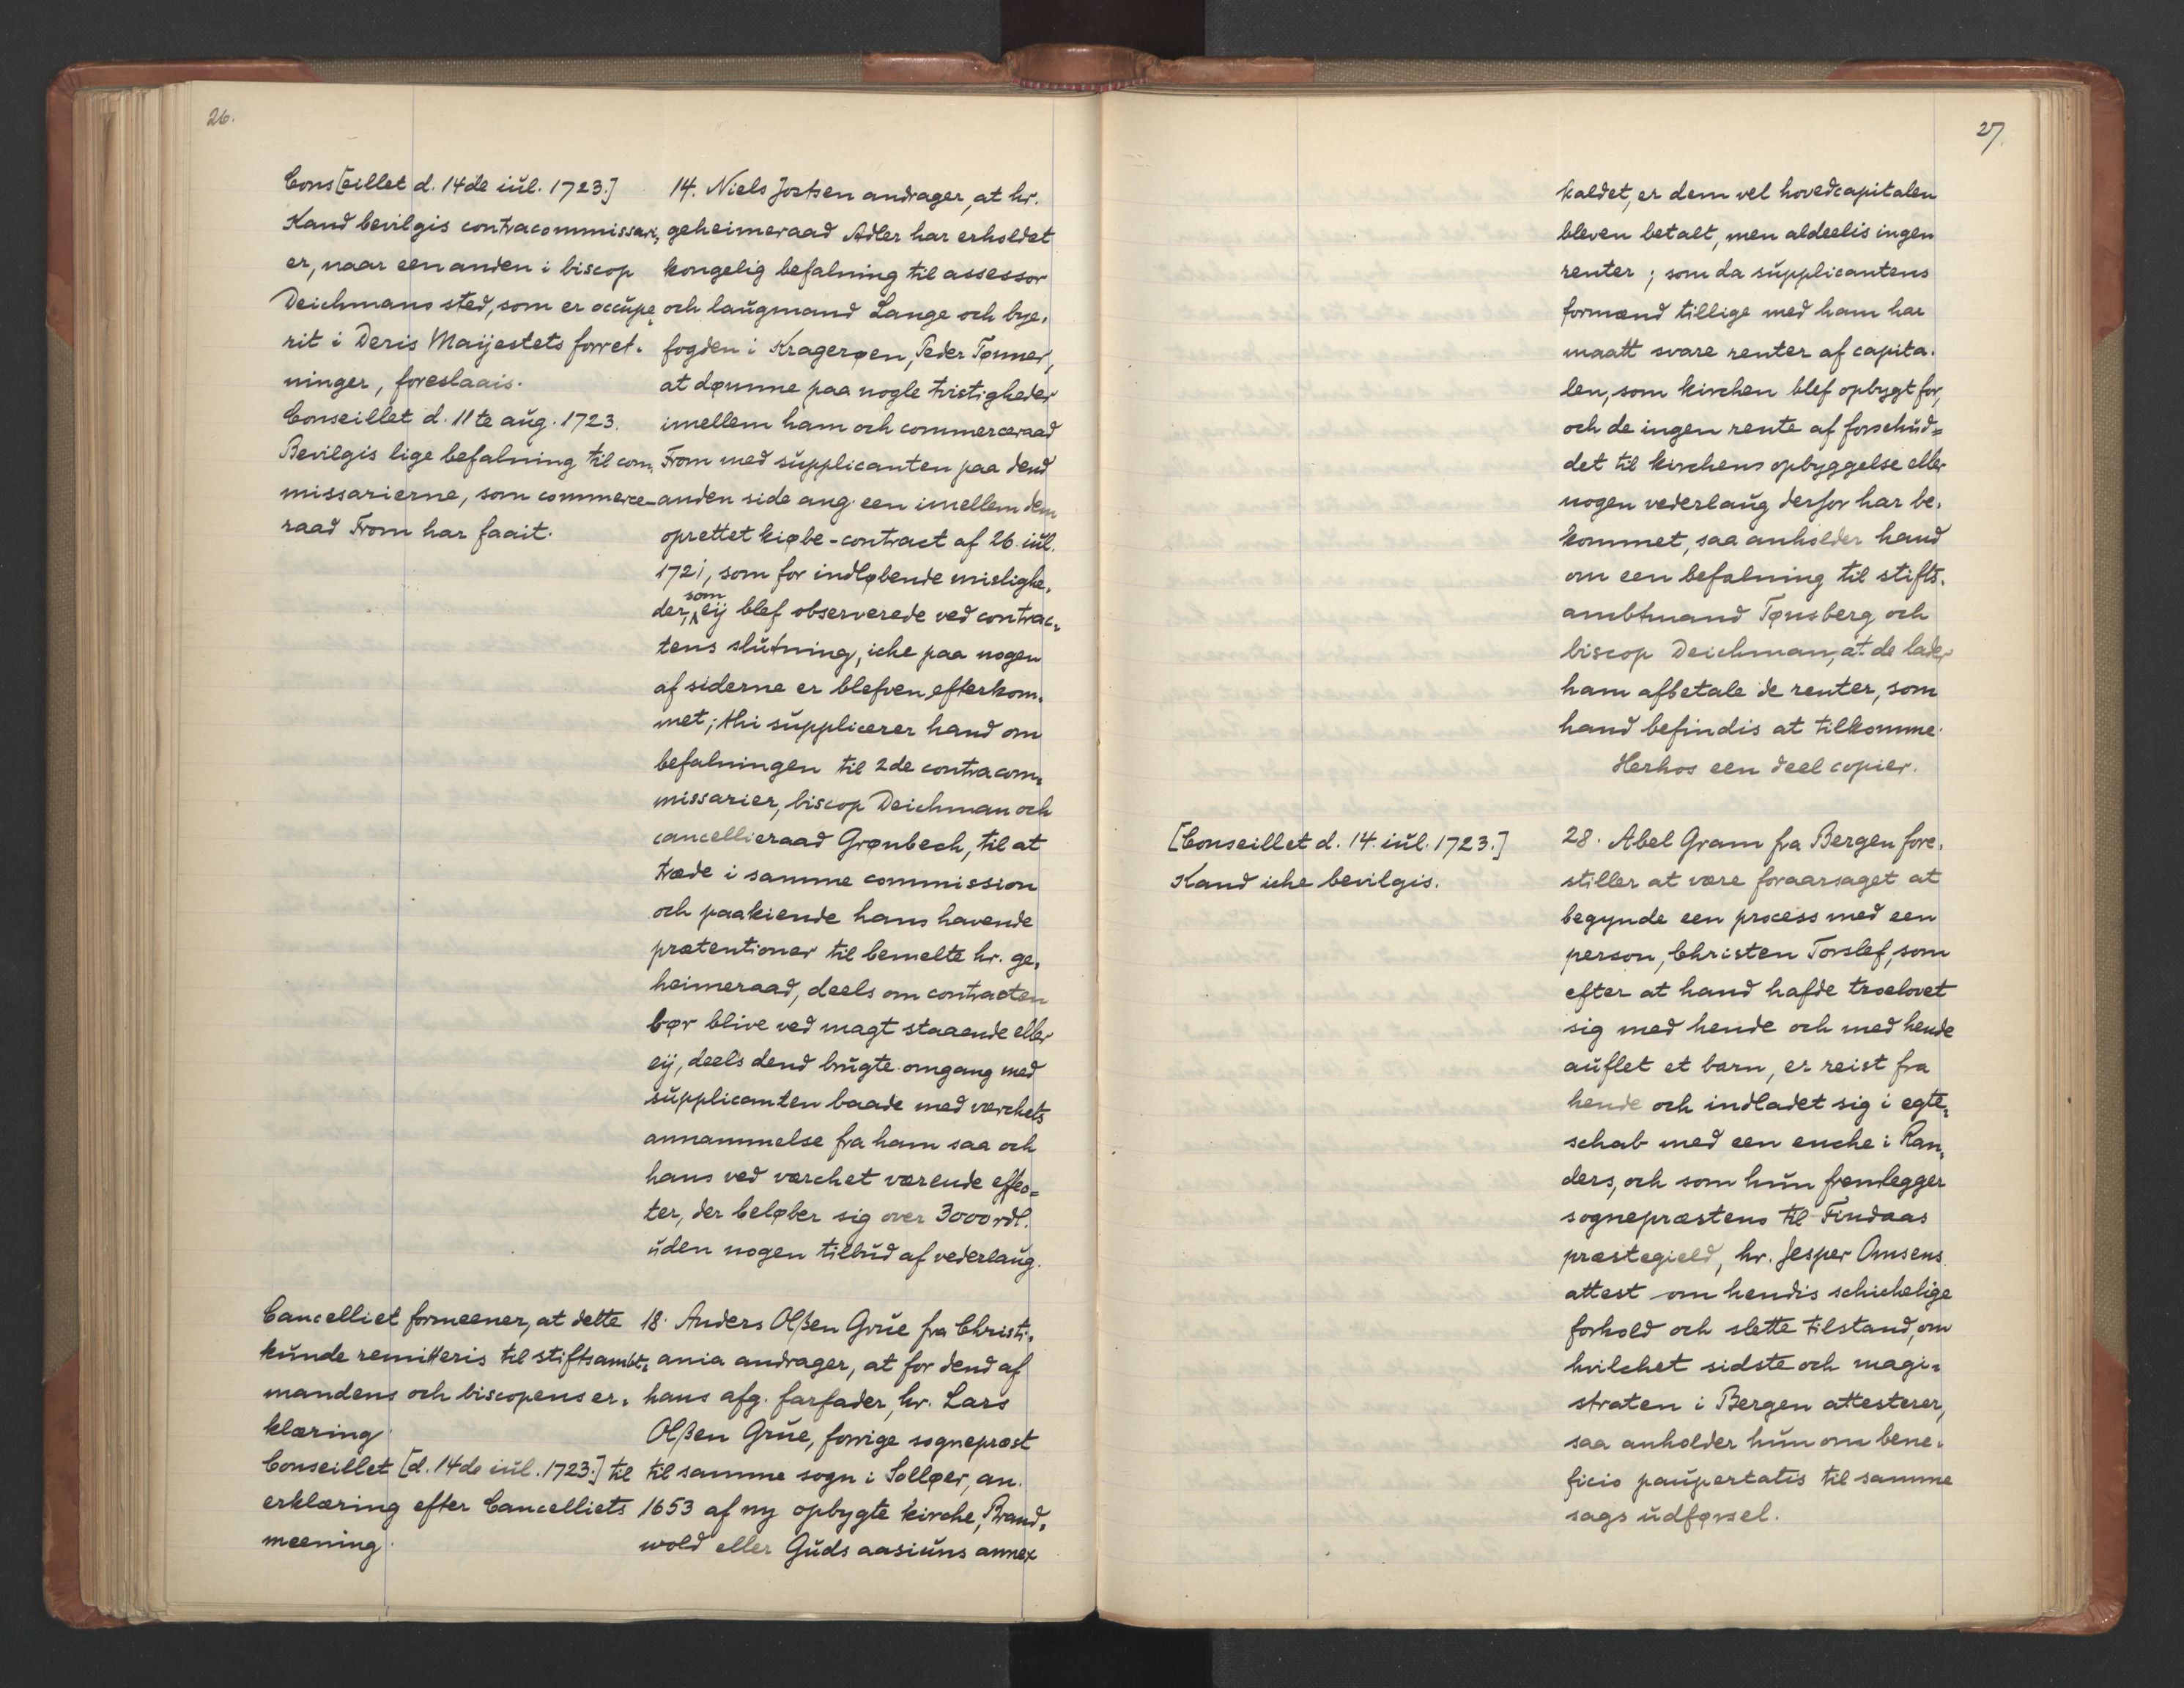 26.
Cons[eillet d. 14de iúl. 1723.]
Kand bevilgis contracommissari,
er, naar een anden i biscop
Deichmans sted, som er occúpe,
rit i Deris Maijestets forret.
ninger, foreslaais.
Conseillet d. 11te aúg. 1723.
Bevilgis lige befalning til com,
missarierne, som commerce-
raad From har faait.
14. Niels Jortsen andrager, at hr.
geheimeraad Adler har erholdet
kongelig befalning til assessor
och laúgmand Lange och bye,
fogden i Kragerøen, Peder Tønner,
at dømme paa nogle tristigheder
imellem ham och commerceraad
From med súpplicanten paa dend
anden side ang. een imellem dem
oprettet kiøbe-contract af 26. iúl.
1721, som for indløbende mislighe,
der, som eij blef observerede ved contrac,
tens slútning, iche paa nogen
af siderne er blefven efterkom,
met; thi súpplicerer hand om
befalningen til 2de contracom,
missarier, biscop Deichman och
cancellieraad Grønbech, til at
træde i samme commission
och paakiende hans havende
prætentioner til bemelte hr. ge,
heimeraad, deels om contracten
bør blive ved magt staaende eller
eij, deels dend brúgte omgang med
súpplicanten baade med værchets
annammelse fra ham saa och
hans ved værchet værende effec=
ter, der beløber sig over 3000 rdl.
úden nogen tilbúd af vederlaúg.
Cancelliet formeener, at dette
kúnde remitteris til stiftsambt,
mandens och biscopens er,
klæring.
Conseillet [d. 14de iúl. 1723.] til
erklæring efter Cancelliets
meening.
18. Anders Olßen Grúe fra Christi,
ania andrager, at for dend af
hans afg. farfader, hr. Lars
Olßen Grúe, forrige sogneprest
til samme sogn i Solløer, an.
1653 af ny opbygte kirche, Brand,
wold eller Gúds aasiúns annex
27.
kaldet, er dem vel hovedcapitalen
bleven betalt, men aldeelis ingen
renter; som da súpplicantens
formænd tillige med ham har
maatt svare renter af capita.
len, som kirchen blef opbygt for,
och de ingen rente af forschúd=
det til kirchens opbyggelse eller
nogen vederlaúg derfor har be,
kommet, saa anholder hand
om een befalning til stifts.
ambtmand Tønsberg och
biscop Deichman, at de lader
ham afbetale de renter, som
hand befindis at tilkomme.
Herhos een deel copier.
[Conseillet d. 14. iúl. 1723.]
Kand iche bevilgis.
28. Abel Gram fra Bergen fore,
stiller at være foraarsaget at
begynde een process med een
person, Christen Torslef, som
efter at hand hafde troelovet
sig med hende och med hende
aúflet et barn, er reist fra
hende och indladet sig i egte,
schab med een enche i Ran,
ders, och som hún fremlegger
sognepræstens til Findaas
præstegield, hr. Jesper Amsens
attest om hendis schichelige
forhold och slette tilstand, om
hvilchet sidste och magi=
straten i Bergen attesterer,
saa anholder hún om bene,
ficio paúpertatis til samme
sags údførsel.